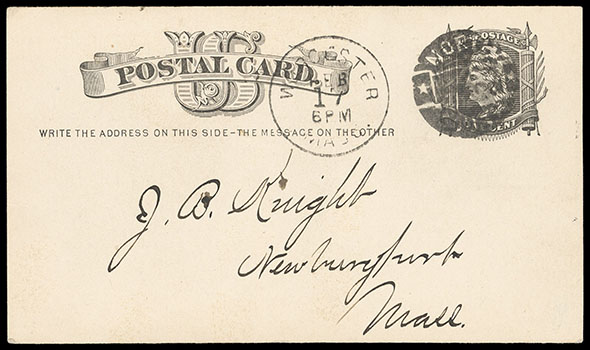 US
POSTAL CARD.
WORCESTER
FEB
17
6 PM
MASS.
POSTAGE
ONE CENT
WRITE THE ADDRESS ON THIS SIDE-THE MESSAGE ON THE OTHER
J. B. Knight
Newburyport
Mass.